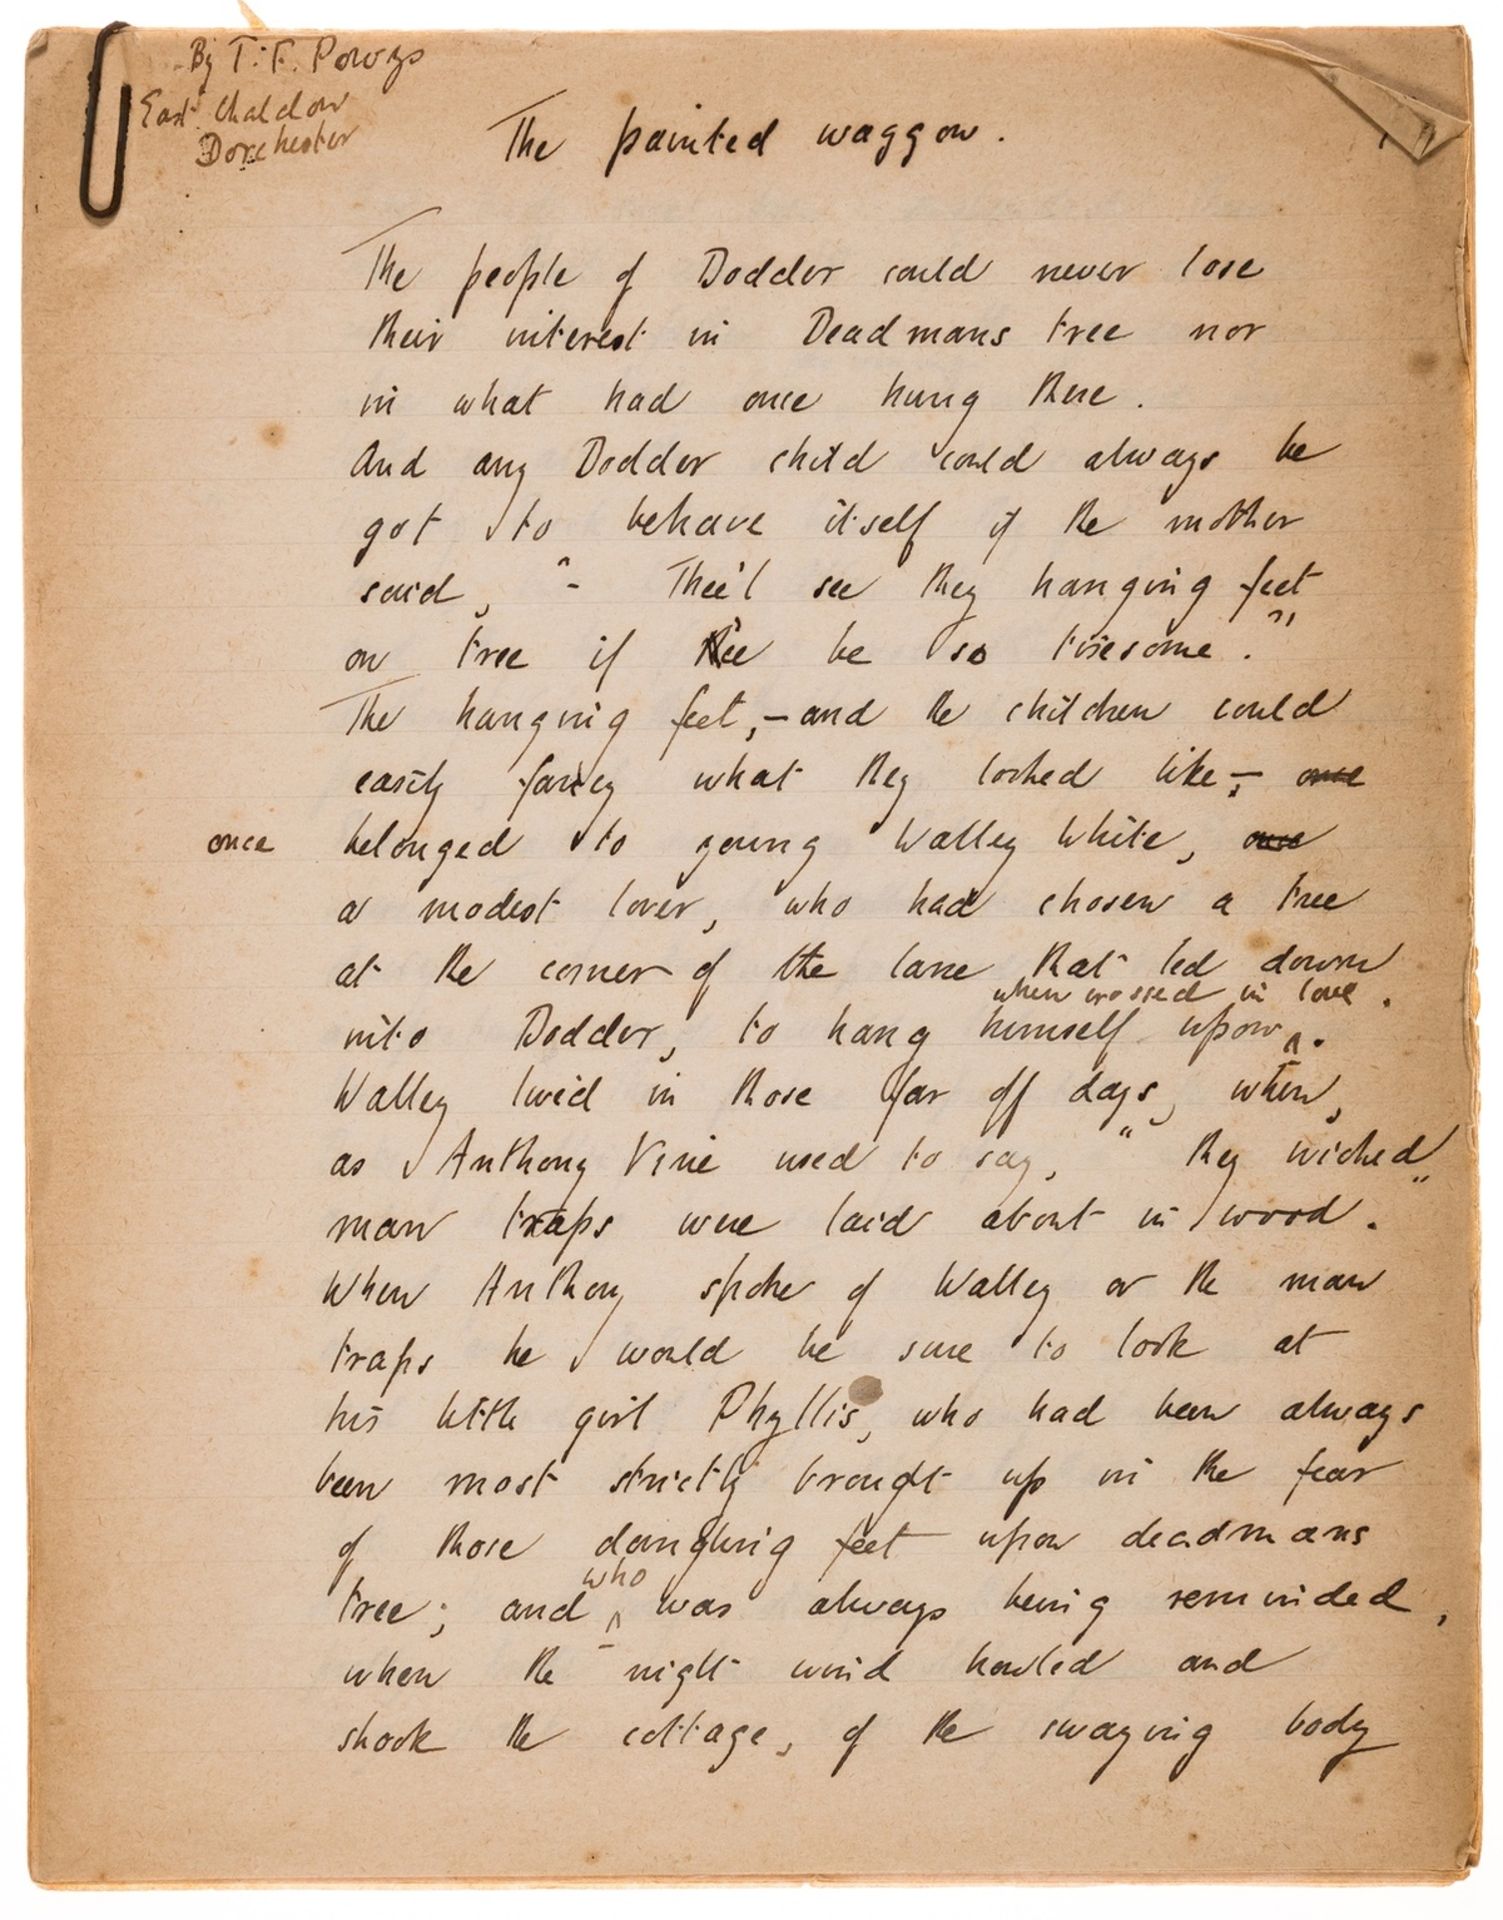 By T. F. Powys
East Chaldon
Dorchester
The painted waggon.
The people of Dodder could never lose
their interest in Deadmans tree nor
in what had once hung there.
And any Dodder child could always be
got to behave itself if the mother
said, "- Thee'l see they hanging feet
on tree if thee be so tiresome."
The hanging feet, - and the children could
easily fancy what they looked like, - once
once belonged to young Walley White, once
a modest lover, who had chosen a tree
at the corner of the lane that led down
when crossed in love.
into Dodder, to hang himself upon ^.
Walley lived in those far off days, when,
as Anthony Vine used to say, " they wicked
man traps were laid about in wood."
When Anthony spoke of Walley or the man
traps he would be sure to look at
his little girl Phyllis, who had been always
been most strictly brought up in the fear
of those dangling feet upon deadmans
who
tree; and ^ was always being reminded,
when the night wind howled and
shook the cottage, of the swaying body